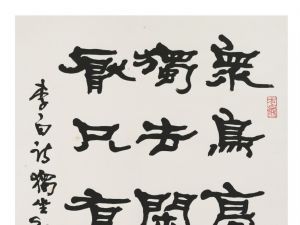 衆鳥高
獨去閑
厭只有
李白詩獨坐